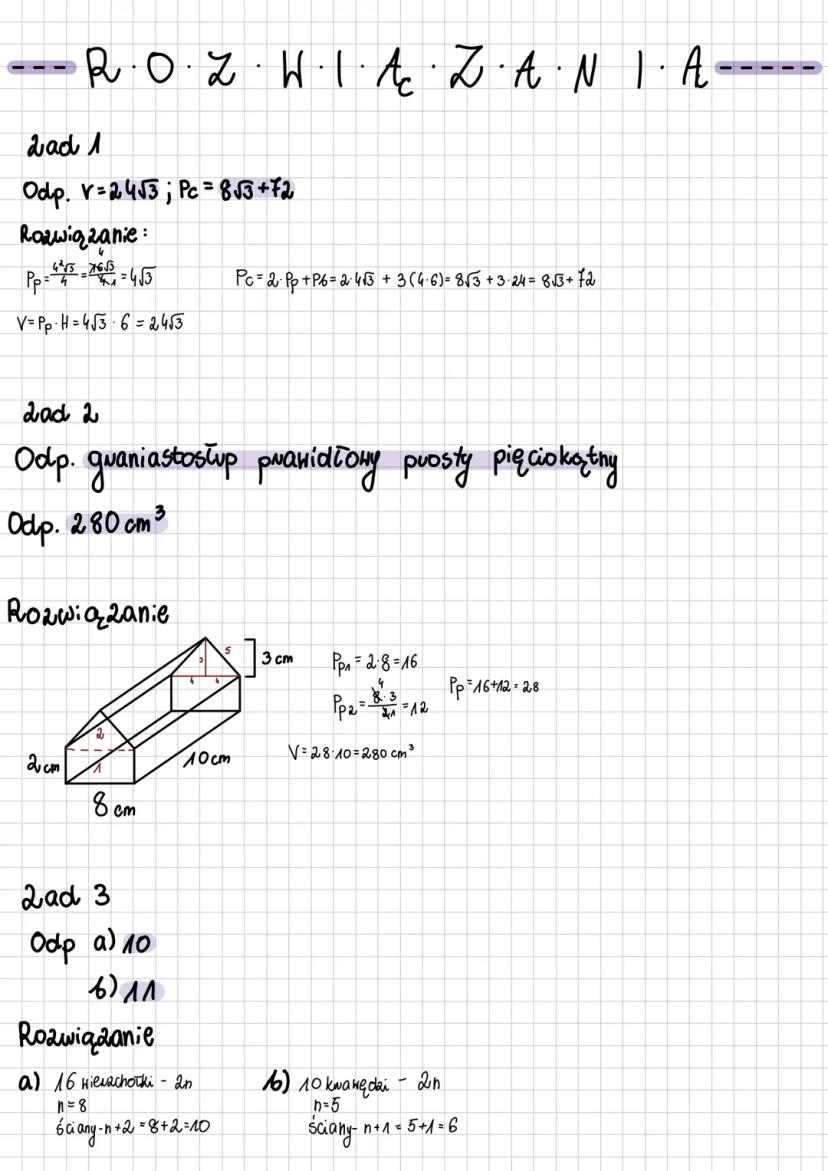 --- R·O·Z·W·I·Ą·Z·A·N I·A -----
Zad 1
Odp. V=24√3 ; Pc = 8√3+72
Rozwiązanie:
Pp = 4²√3/4 = 16√3/4 = 4√3
4
1
Pc = 2·Pp + Pb = 2·4√3 + 3(4·6) = 8√3 + 3·24 = 8√3 + 72
V = Pp·H = 4√3 · 6 = 24√3
Zad 2
Odp. graniastosłup prawidłowy prosty pięciokątny
Odp. 280 cm³
Rozwiązanie
3
5
3 cm
4 4
2
2 cm
1
10 cm
8 cm
Pp1 = 2·8 = 16
4
Pp2 = 8·3/2 = 12
1
Pp = 16+12 = 28
V = 28·10 = 280 cm³
Zad 3
Odp a) 10
b) 11
Rozwiązanie
a) 16 wierzchołki - 2n
n=8
ściany - n+2 = 8+2=10
b) 10 krawędzi - 2n
n=5
ściany - n+1 = 5+1 = 6